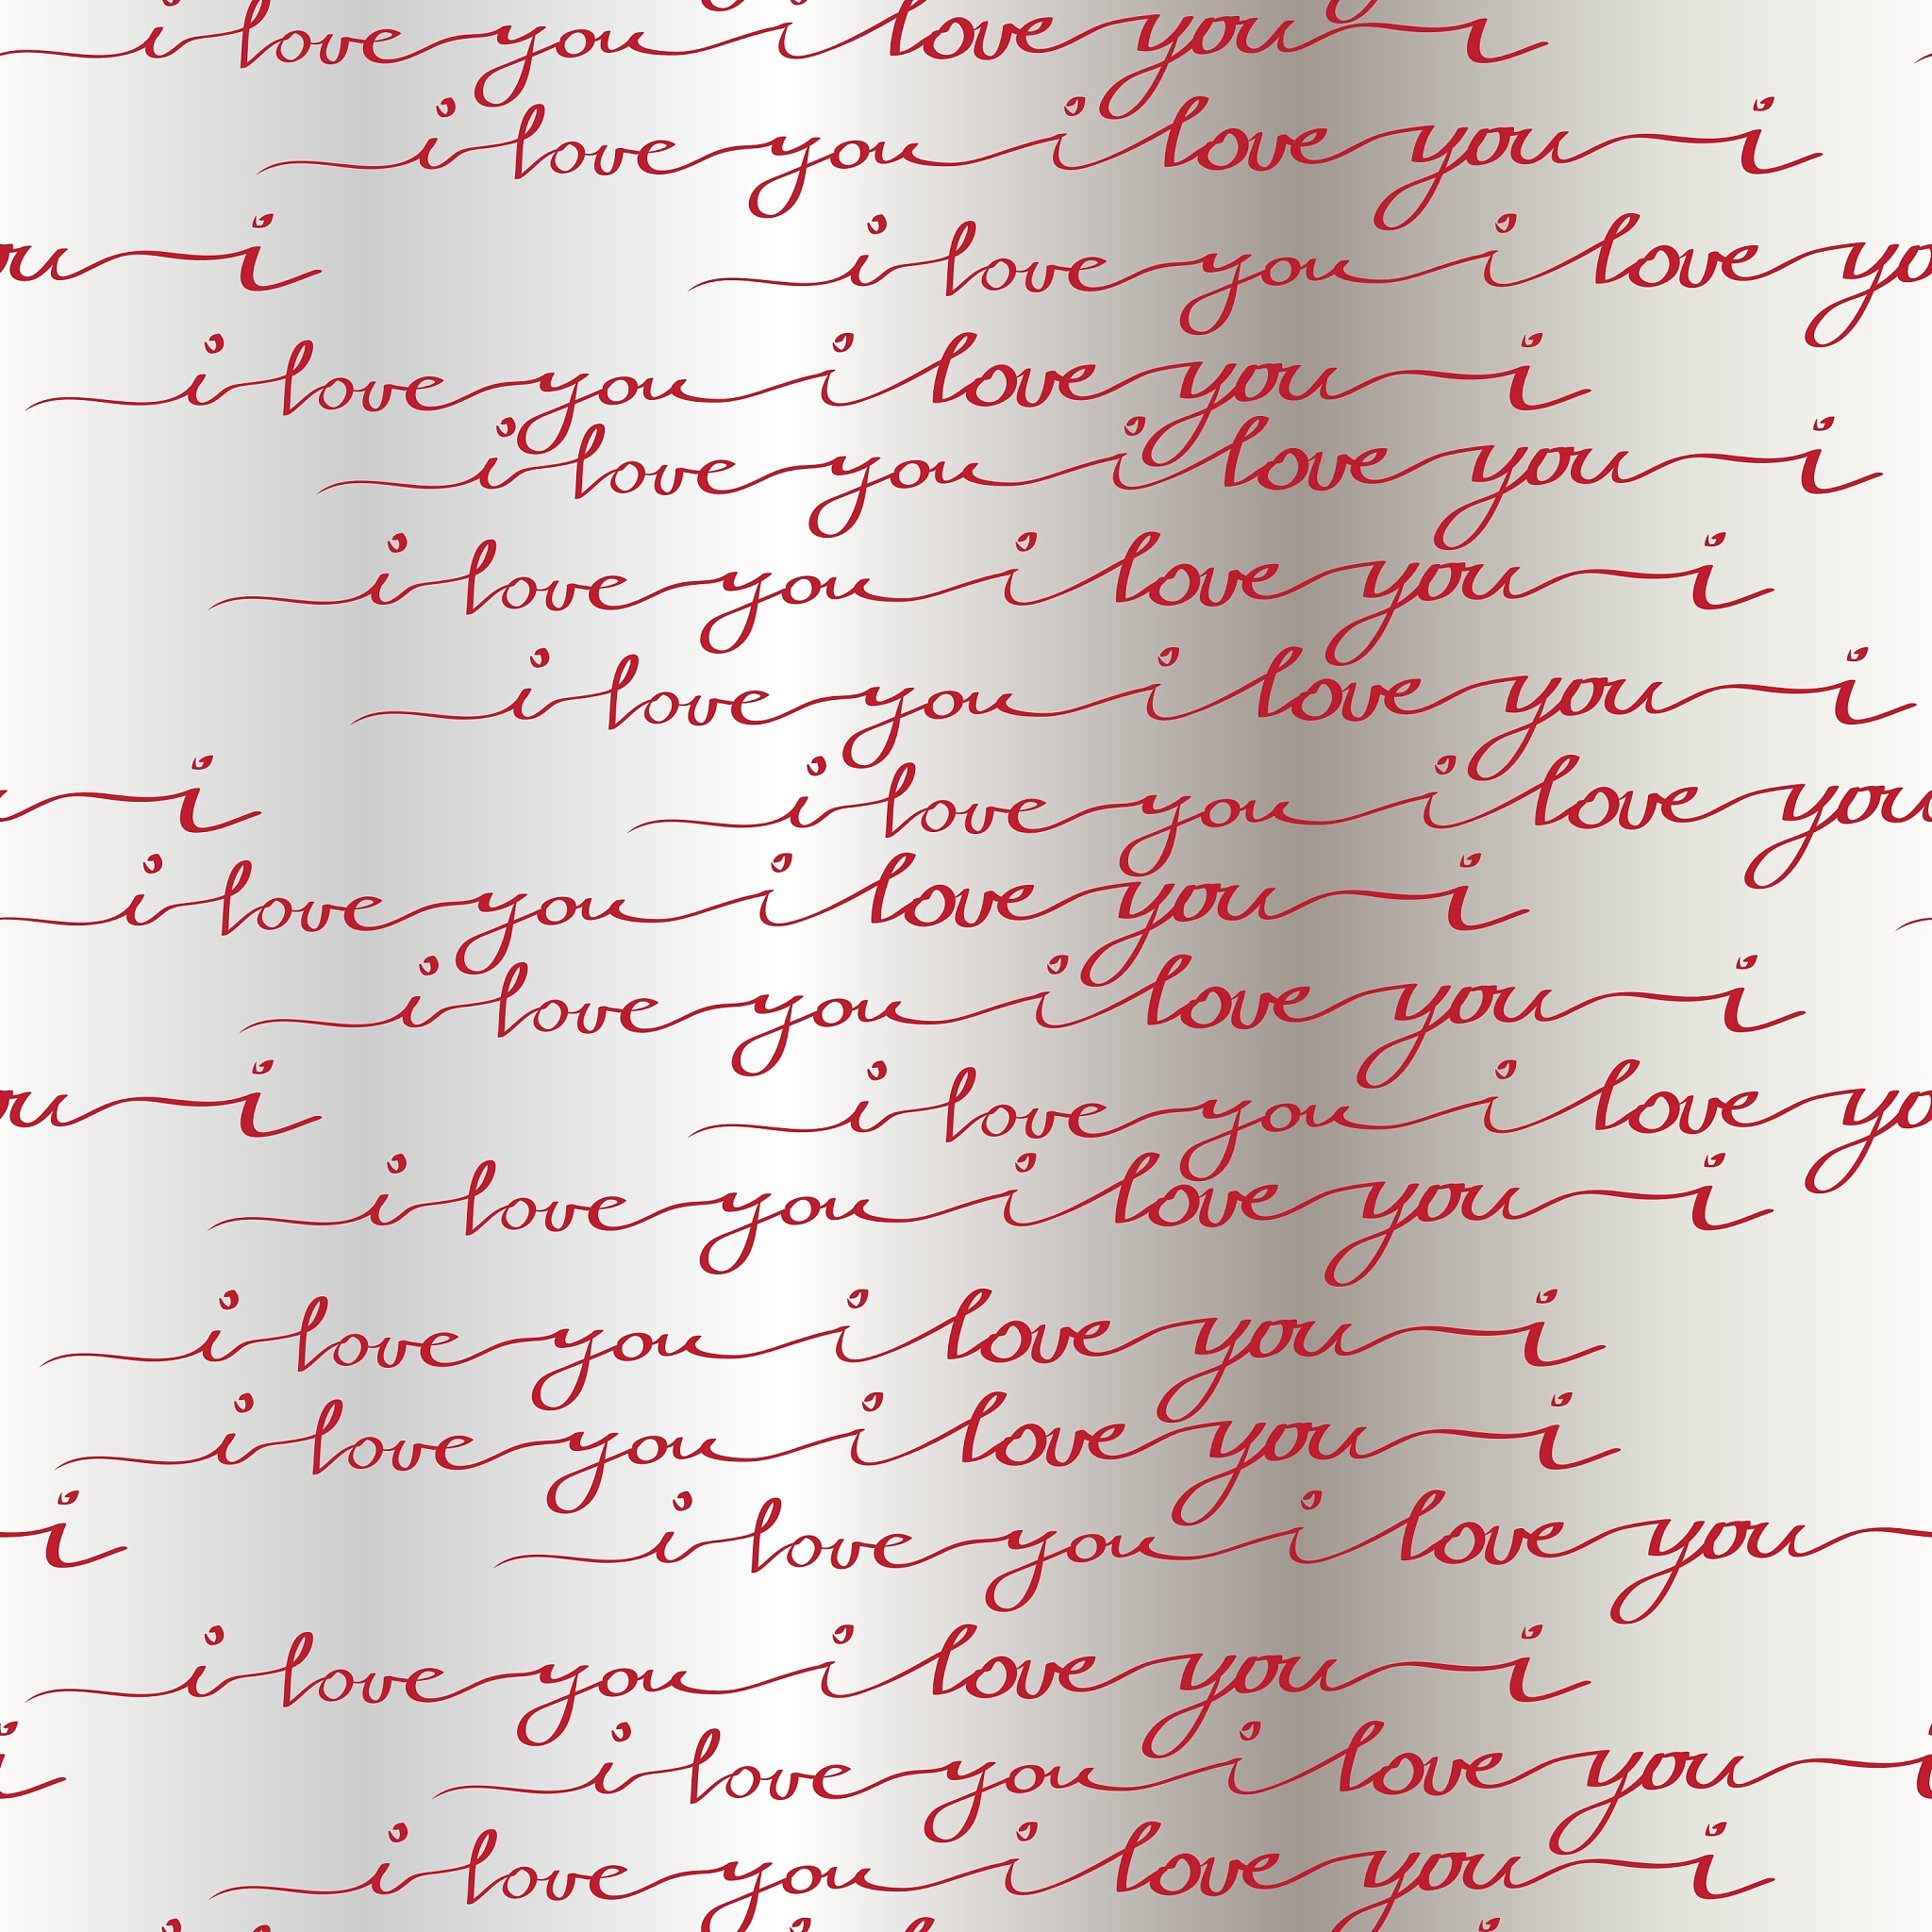 i love you i love you i
i love you i love you i
ou i i love you i love yo
i love you i love you i
i love you i love you i
i love you i love you i
i love you i love you i
i i love you i love you
i love you i love you i
i love you i love you i
ou i i love you i love yo
i love you i love you i
i love you i love you i
i love you i love you i
i i love you i love you
i love you i love you i
i i love you i love you i
i love you i love you i